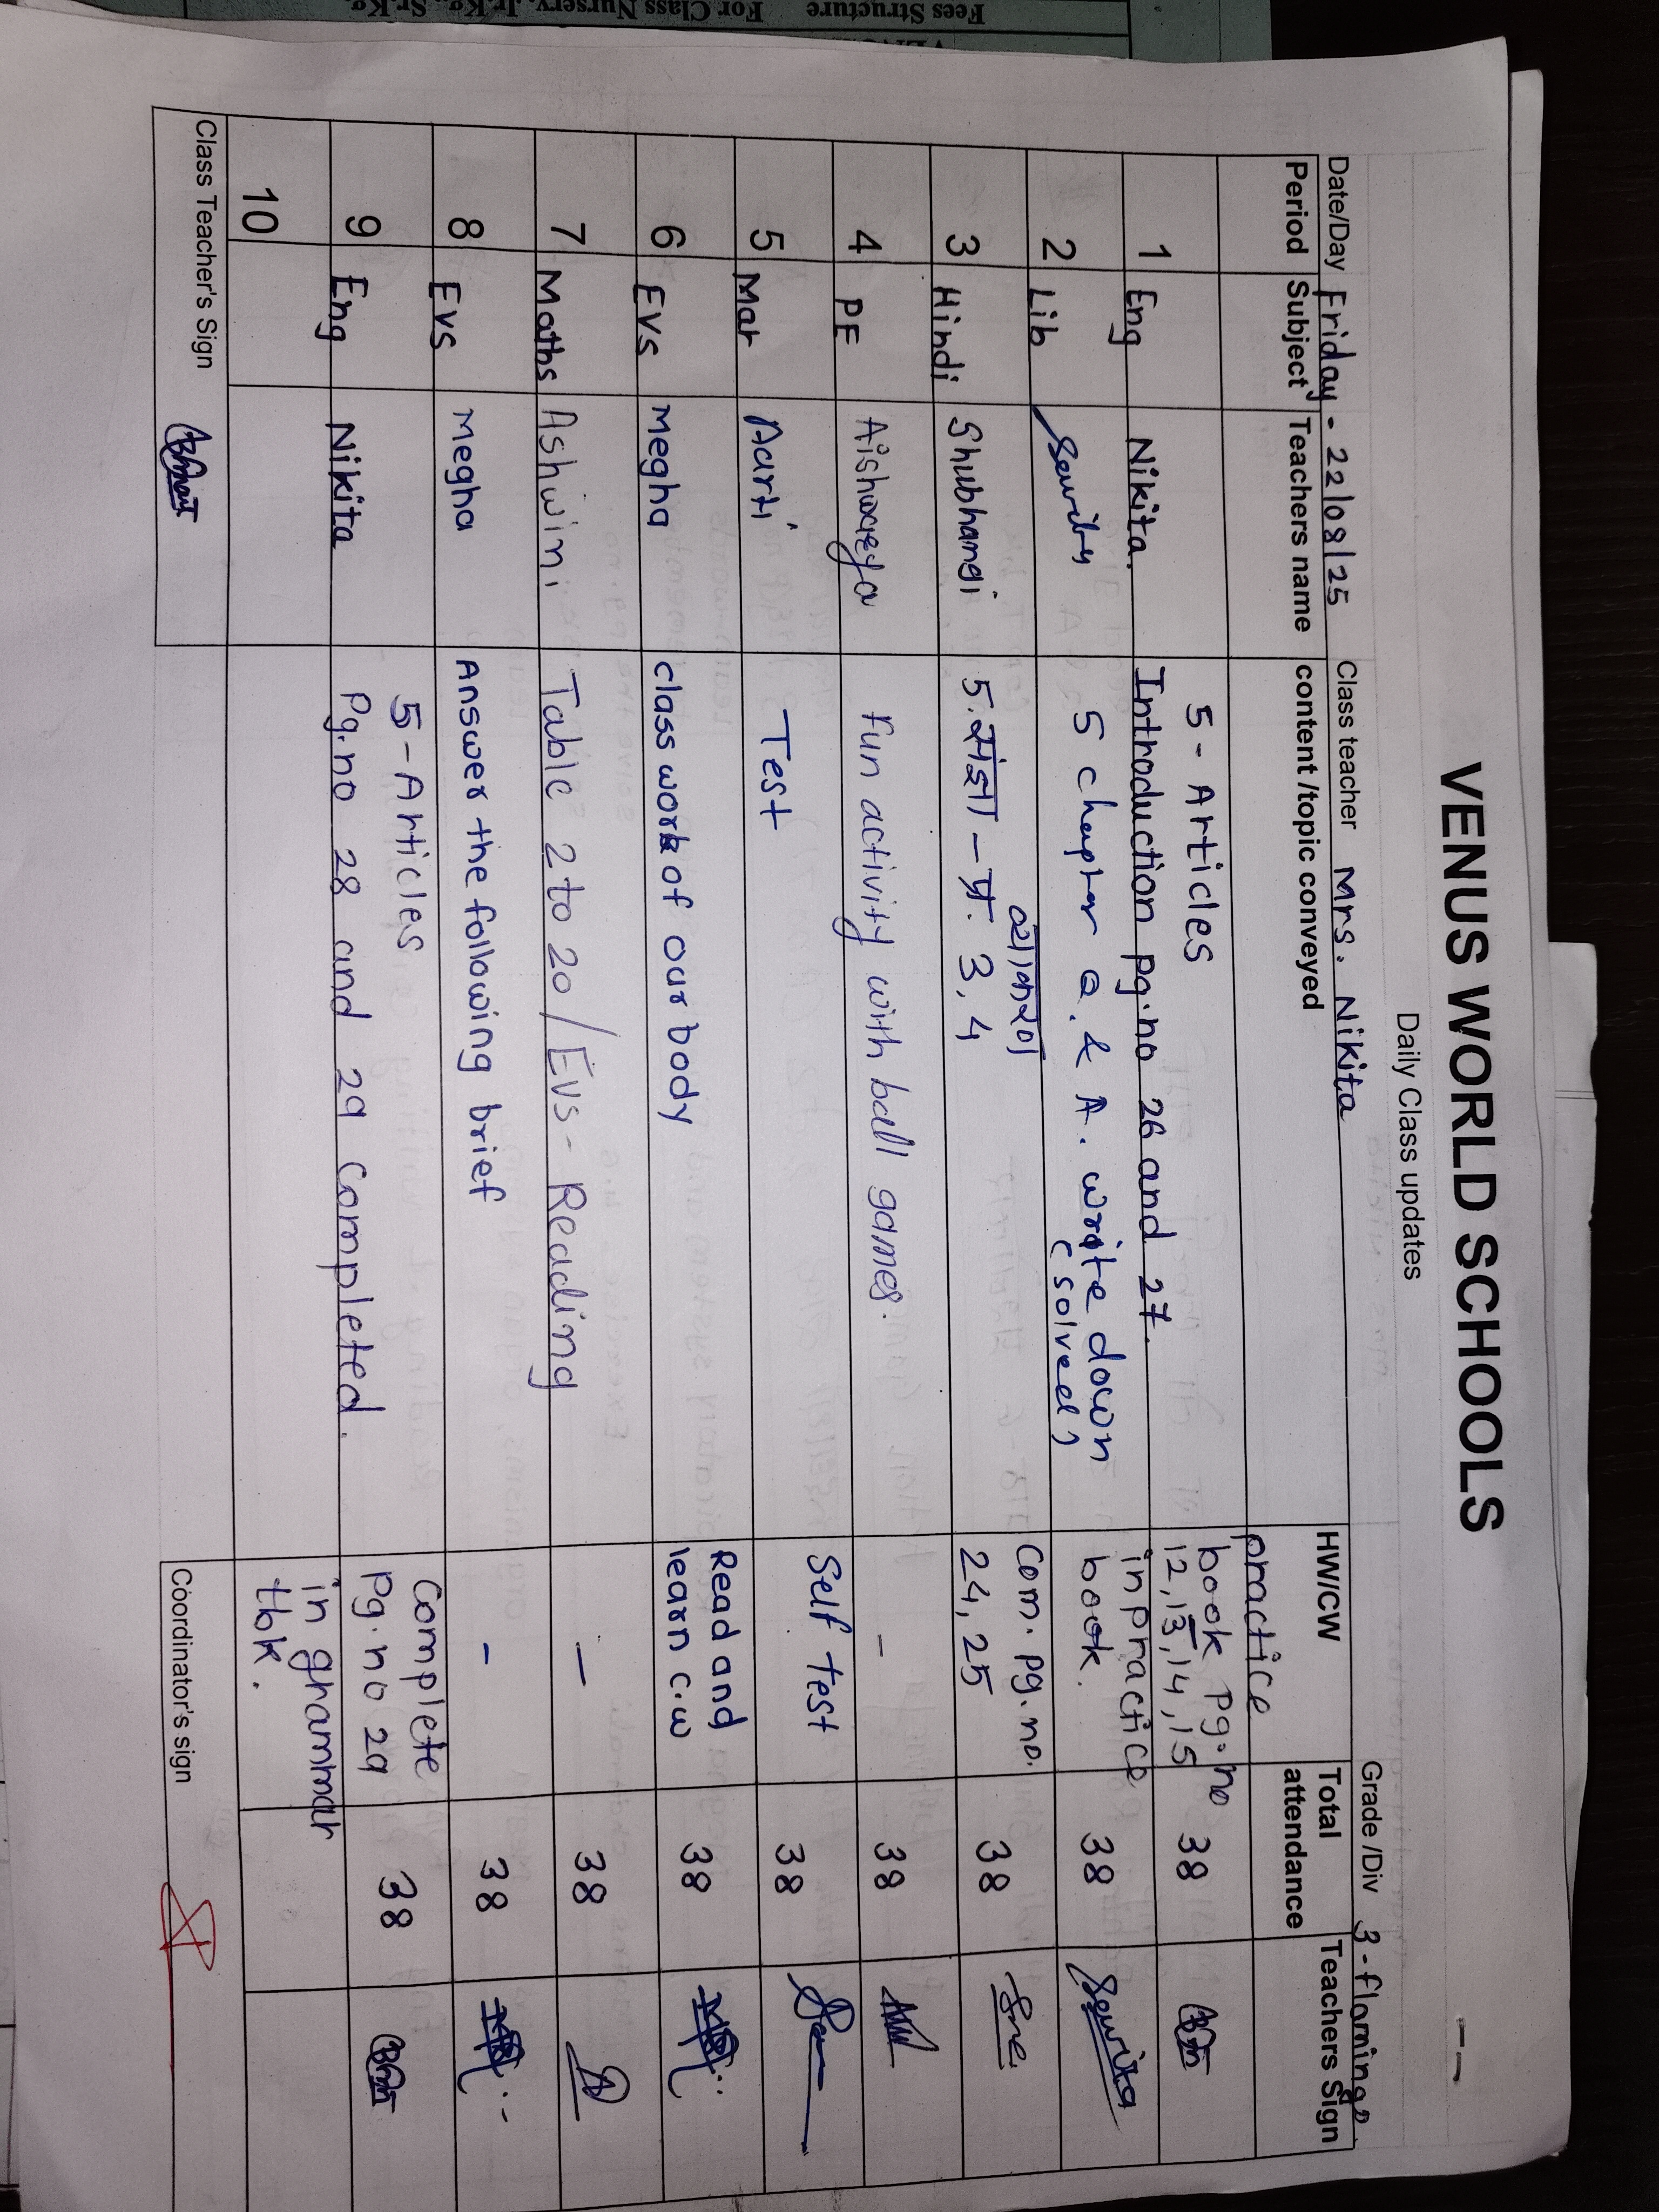 Fees Structure For Class Nursery, Jr.Kg., Sr.Kg.
VENUS WORLD SCHOOLS
Daily Class updates
Date/Day Friday - 22/08/25 Class teacher Mrs. Nikita Grade /Div 3-flamingo
Period Subject Teachers name content /topic conveyed HW/CW Total attendance Teachers Sign
1 Eng Nikita. 5 - Articles Introduction pg.no 26 and 27. practice book pg.no 12,13,14,15 38
2 Lib 5 chapter Q. & A. write down (solved) in practice book. 38
3 Hindi Shubhangi 5. संज्ञा - प्र. 3, 4 व्याकरण Com. pg. no. 24, 25 38
4 PE Aishwarya Fun activity with ball games. - 38
5 Mar Aarti Test Self test 38
6 Evs Megha class work of our body Read and learn c.w 38
7 Maths Ashwini Table 2 to 20 / Evs - Reading - 38
8 Evs Megha Answer the following brief - 38
9 Eng Nikita 5 - Articles Pg.no 28 and 29 completed. Complete Pg.no 29 in grammar tbk. 38
10
Class Teacher's Sign Coordinator's sign